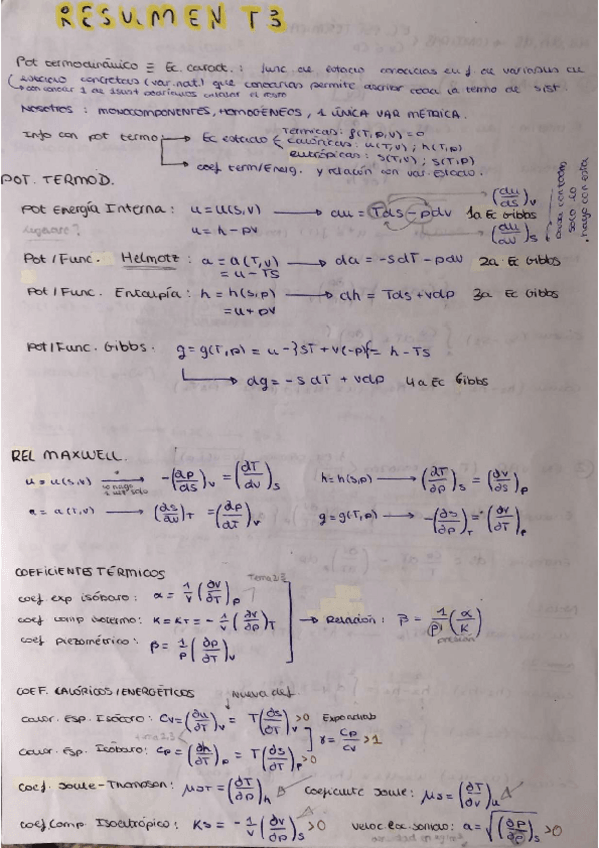 RESUMEN T3
Pot termodinámico ≡ Ec. caract.: func de estado conocidas en f de variables de
estado concretas (var. nat.) que conocerlas permite describir toda la termo de sist.
con conocer 1 de estas podríamos calcular el resto
NOSOTROS: MONOCOMPONENTES, HOMOGÉNEOS, 1 ÚNICA VAR MÉTRICA.
Info con pot termo → Ec estado { Térmicas: f(T,p,v) = 0
calóricas: u(T,v); h(T,p)
entrópicas: s(T,v); s(T,p)
→ coef term/Energ. y relación con var. estado.
POT. TERMOD.
Pot Energía Interna: u = u(s,v) → du = Tds - pdv 1a Ec Gibbs
u = h - pv
(du/ds)v
(du/dv)s
solo lo
hago con esta
Pot/Func. Helmotz: a = a(T,v) → da = -sdT - pdv 2a Ec Gibbs
= u - TS
Pot/Func. Entalpía: h = h(s,p) → dh = Tds + vdp 3a Ec Gibbs
= u + pv
Pot/Func. Gibbs. g = g(T,p) = u - {sT + v(-p)} = h - TS
→ dg = -sdT + vdp 4a Ec Gibbs
REL MAXWELL.
u = u(s,v) → -(∂p/∂s)v = (∂T/∂v)s h = h(s,p) → (∂T/∂p)s = (∂v/∂s)p
a = a(T,v) → (∂s/∂v)T = (∂p/∂T)v g = g(T,p) → -(∂s/∂p)T = (∂v/∂T)p
COEFICIENTES TÉRMICOS
Tema 2
coef exp isóbaro: α = 1/v (∂v/∂T)p
coef comp isotermo: K = KT = -1/v (∂v/∂p)T → Relación: β = 1/p (α/K)
presión
coef piezométrico: β = 1/p (∂p/∂T)v
COEF. CALÓRICOS/ENERGÉTICOS nueva def.
Calor. Esp. Isócoro: Cv = (∂u/∂T)v = T(∂s/∂T)v >0 Exponente
γ = Cp/Cv >1
Calor. Esp. Isóbaro: Cp = (∂h/∂T)p = T(∂s/∂T)p >0
Coef. Joule-Thompson: μJT = (∂T/∂p)h Coeficiente Joule: μJ = (∂T/∂v)u
coef. Comp. Isoentrópico: Ks = -1/v (∂v/∂p)s >0 Veloc loc. sonido: a = √(∂p/∂ρ)s >0